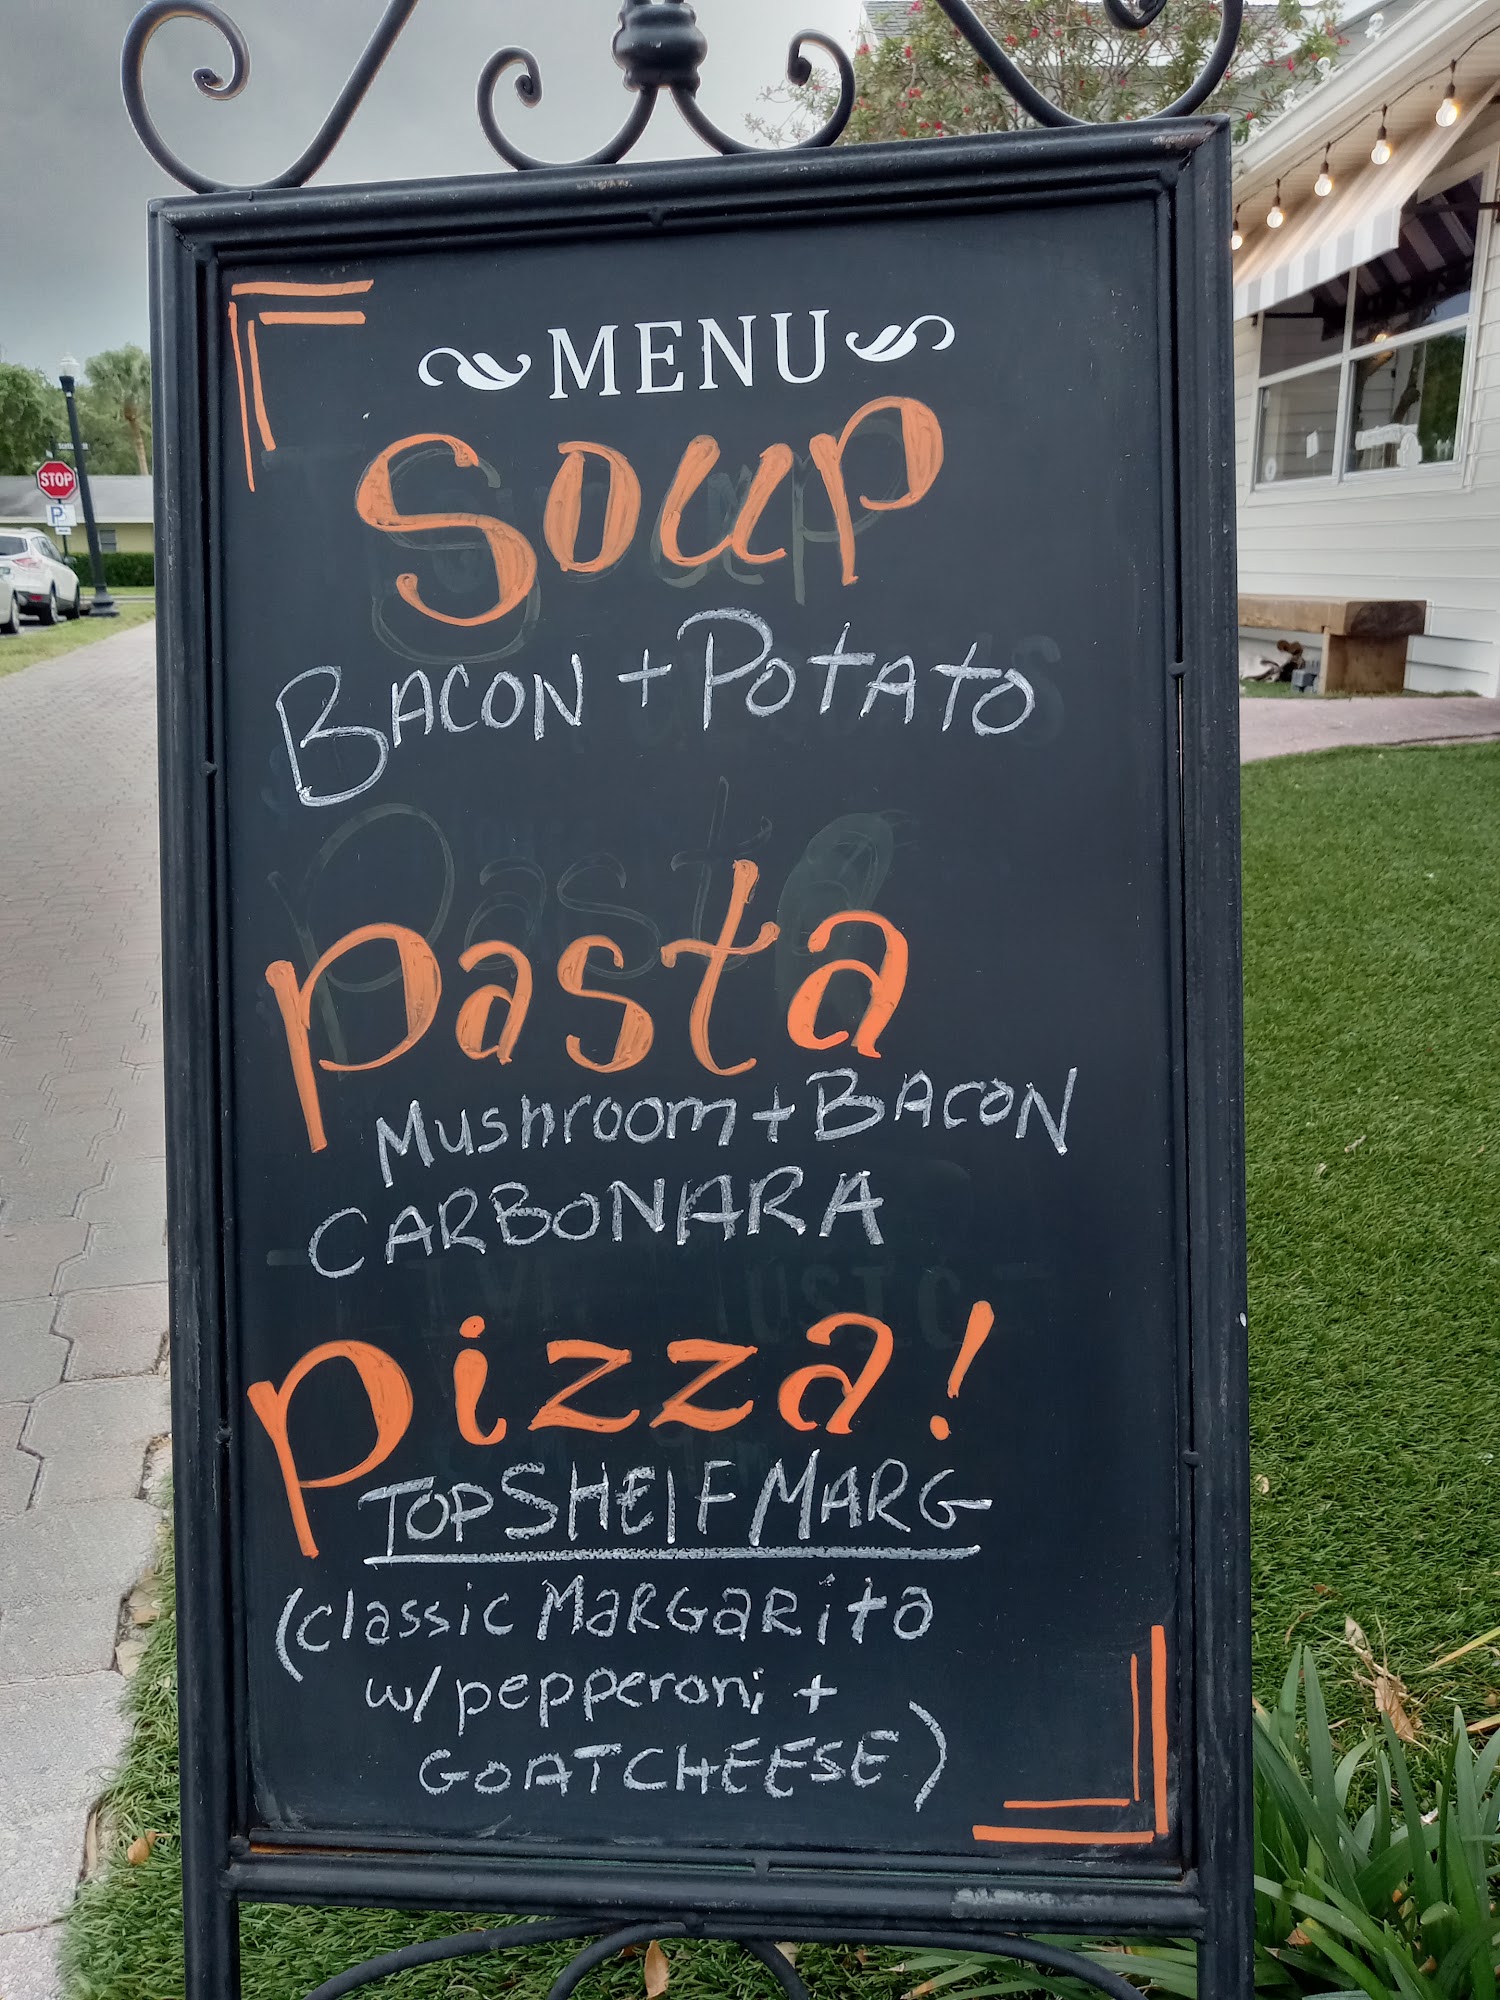 STOP
P
MENU
Soup
BACON + POTATO
Pasta
Mushroom + BACON
CARBONARA
Pizza!
TOP SHELF MARG
(classic MARGARITA
w/ pepperoni +
GOATCHEESE)